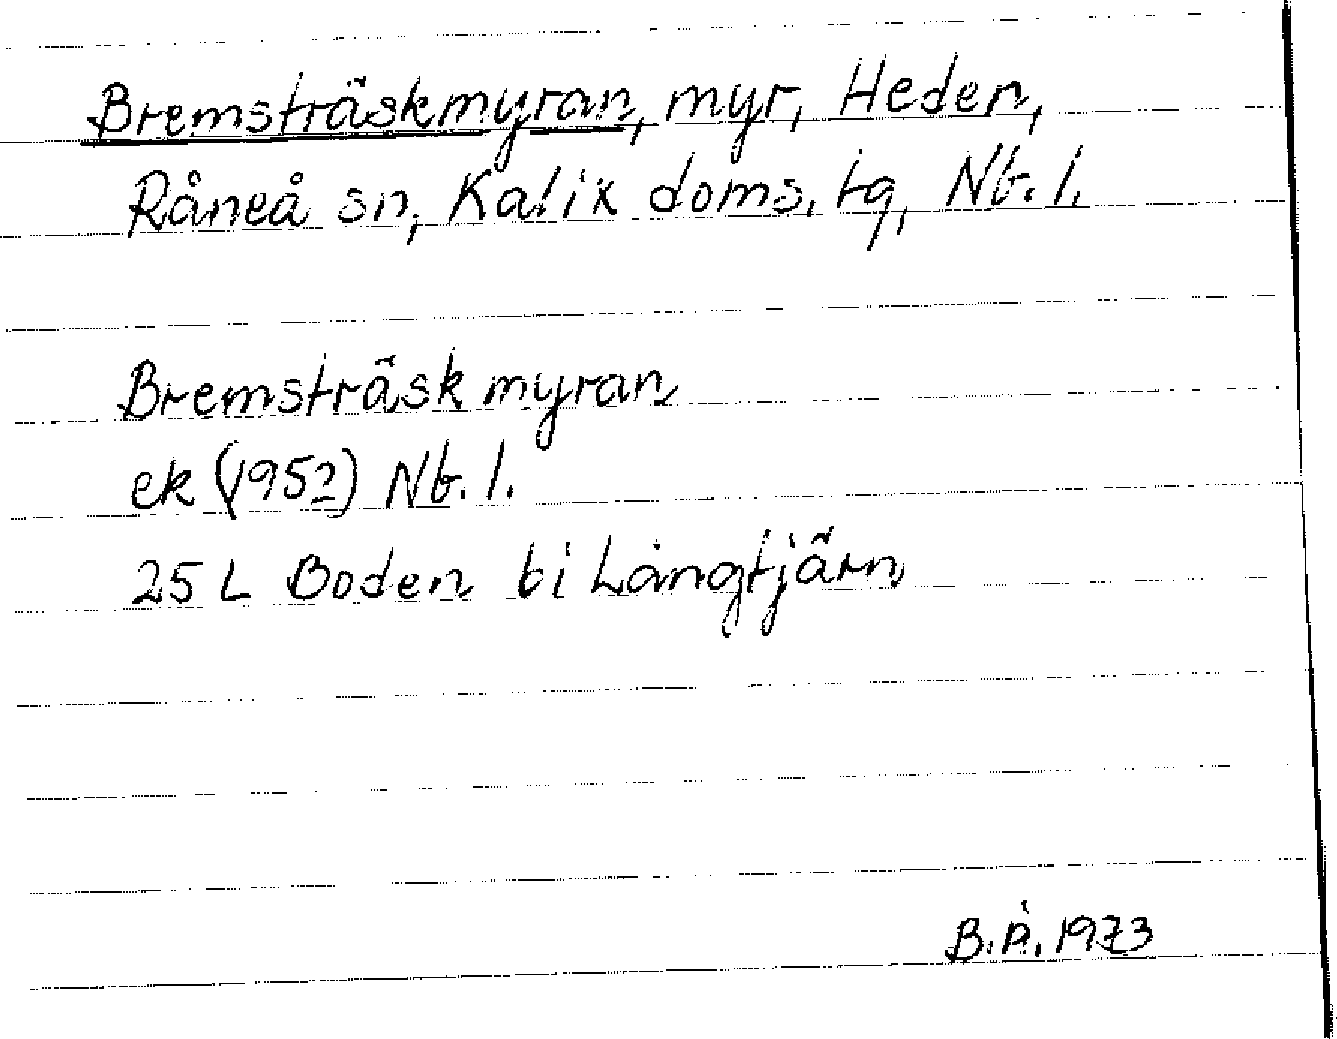 Bremsträskmyran, myr, Heden,
Råneå sn, Kalix doms. tg, Nb. l.
Bremsträskmyran
ek (1952) Nb. l.
25 L Boden bi Långtjärn
B.Å. 1973